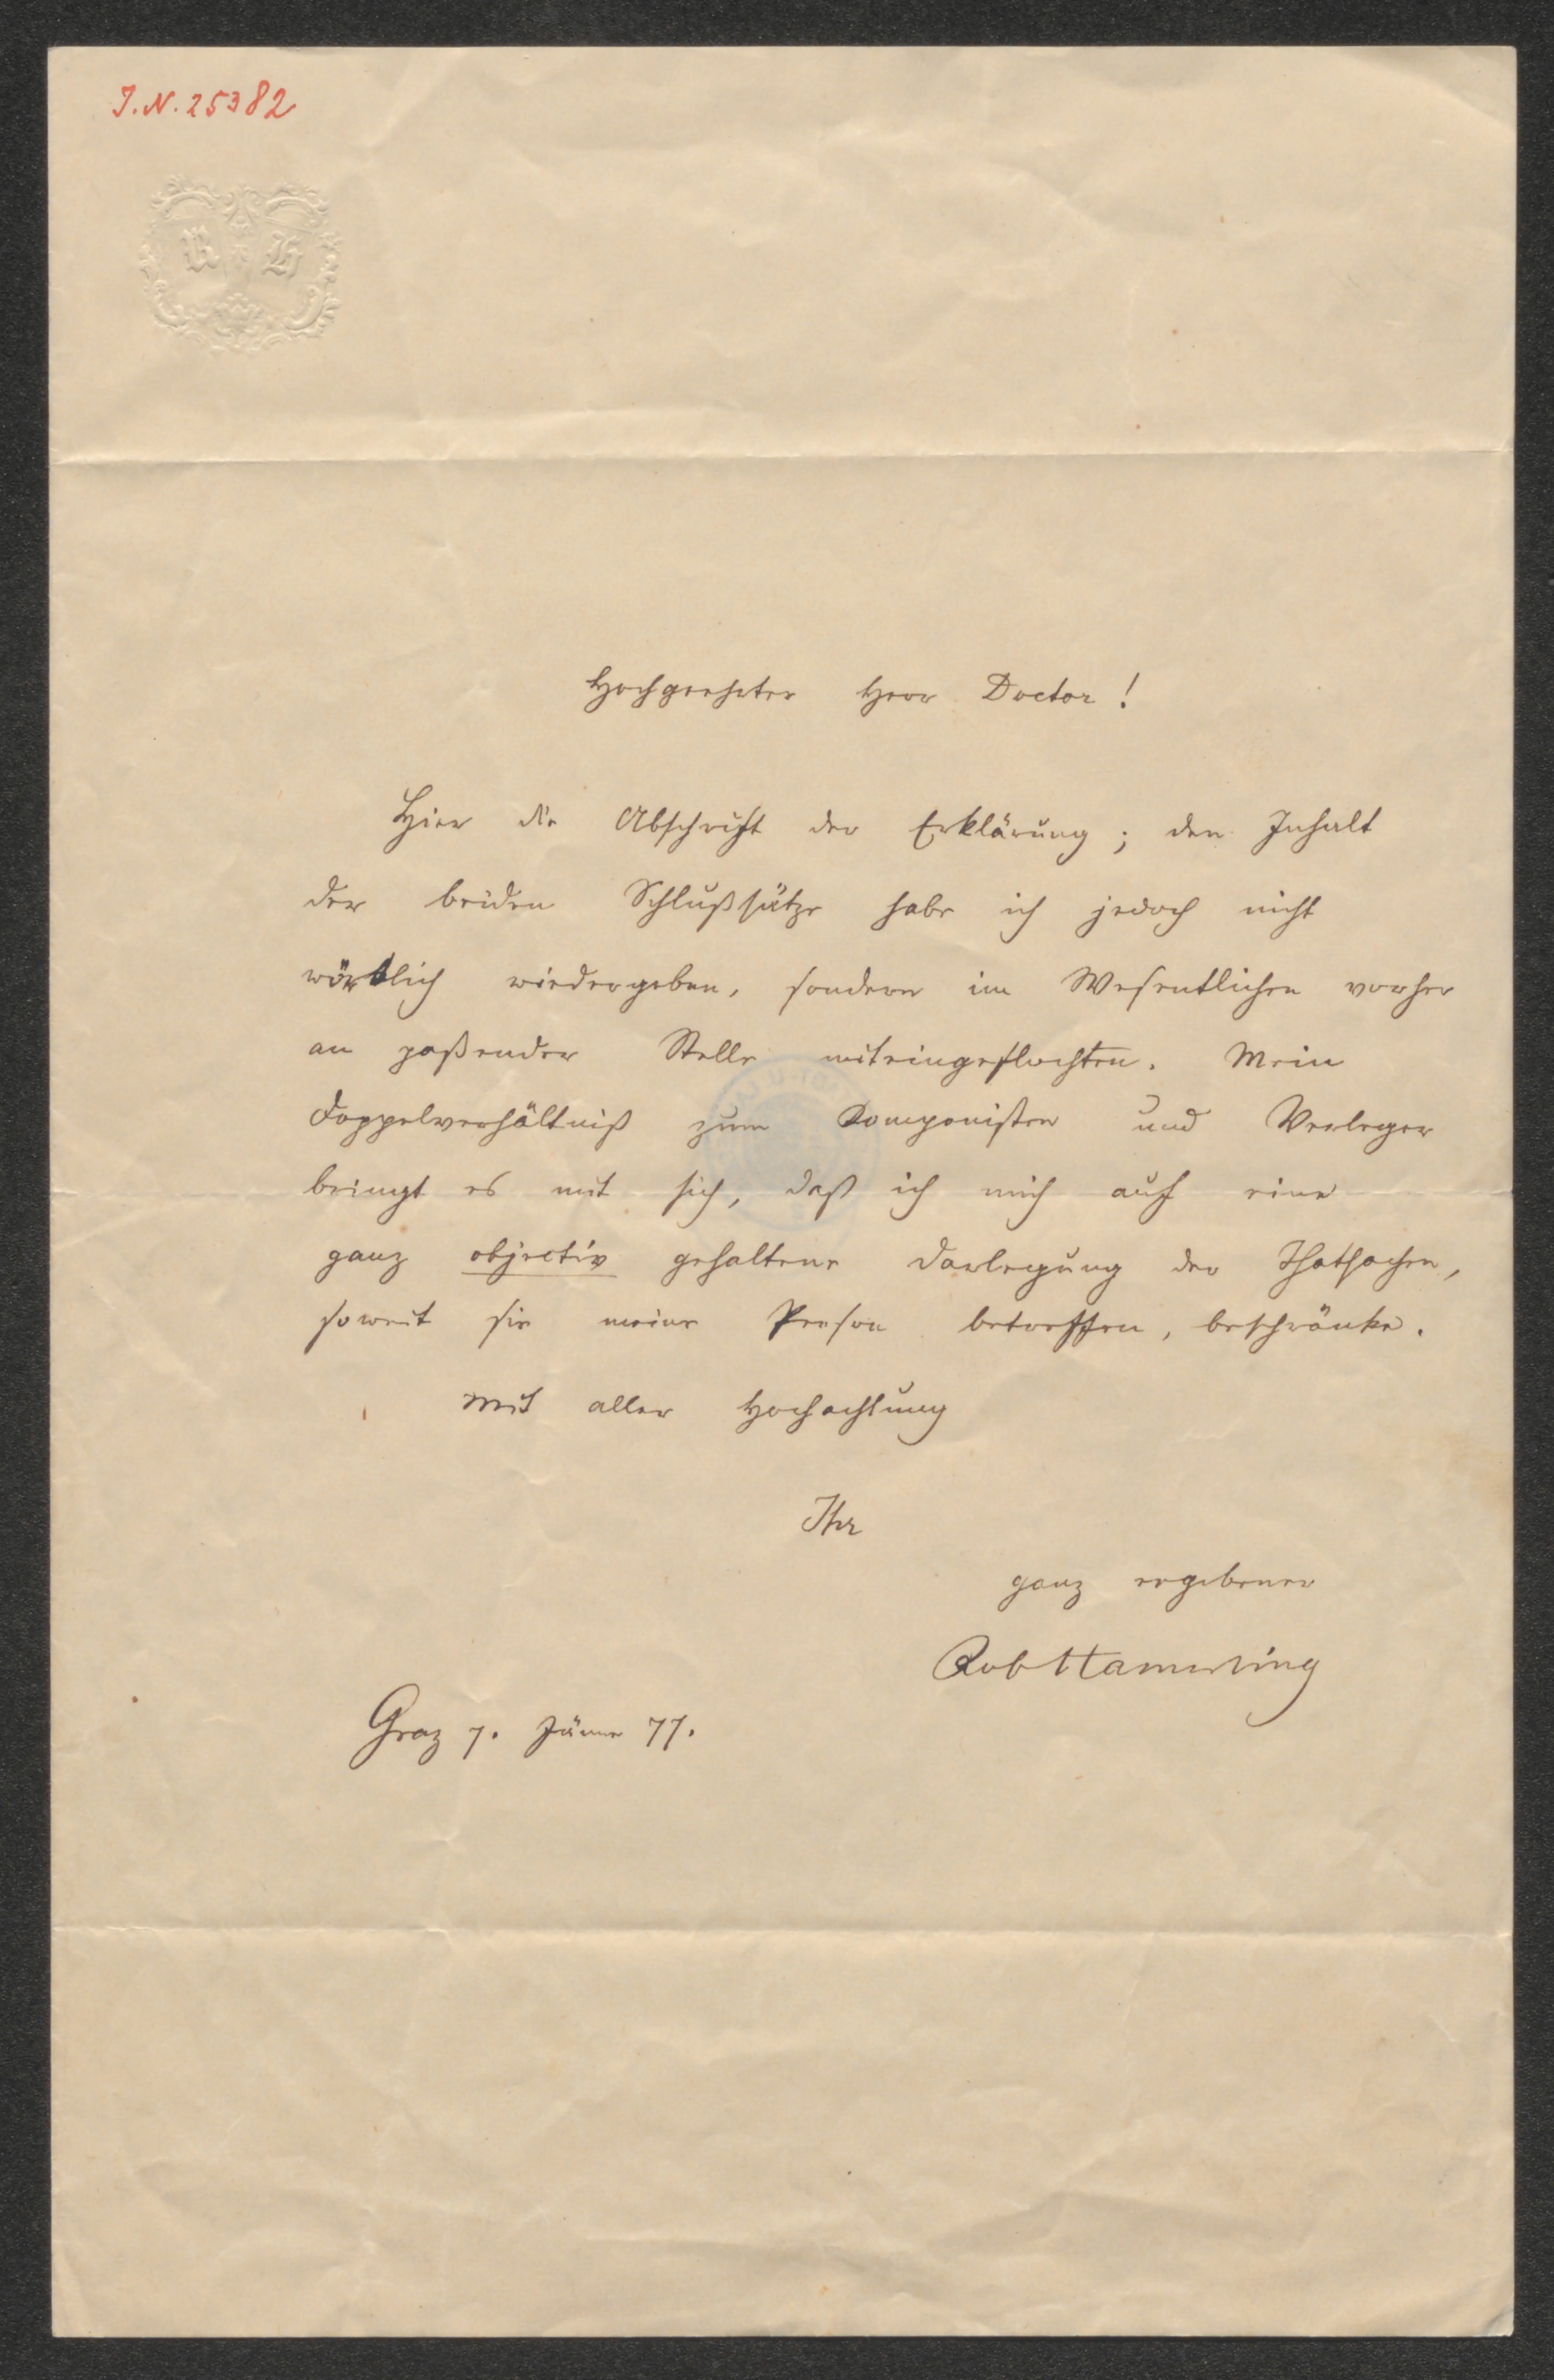 J.N. 25382
R H
Hochgeehrter Herr Doctor!
Hier die Abschrift der Erklärung; den Inhalt
der beiden Schlußsätze habe ich jedoch nicht
wörtlich wiedergeben, sondern im Wesentlichen vorher
an paßender Stelle miteingeflochten. Mein
Doppelverhältniß zum Componisten und Verleger
bringt es mit sich, daß ich mich auf eine
ganz objectiv gehaltene Darlegung der Thatsachen,
soweit sie meine Person betreffen, beschränke.
Mit aller Hochachtung
Ihr
ganz ergebener
Rob Hamerling
Graz 7. Jänner 77.